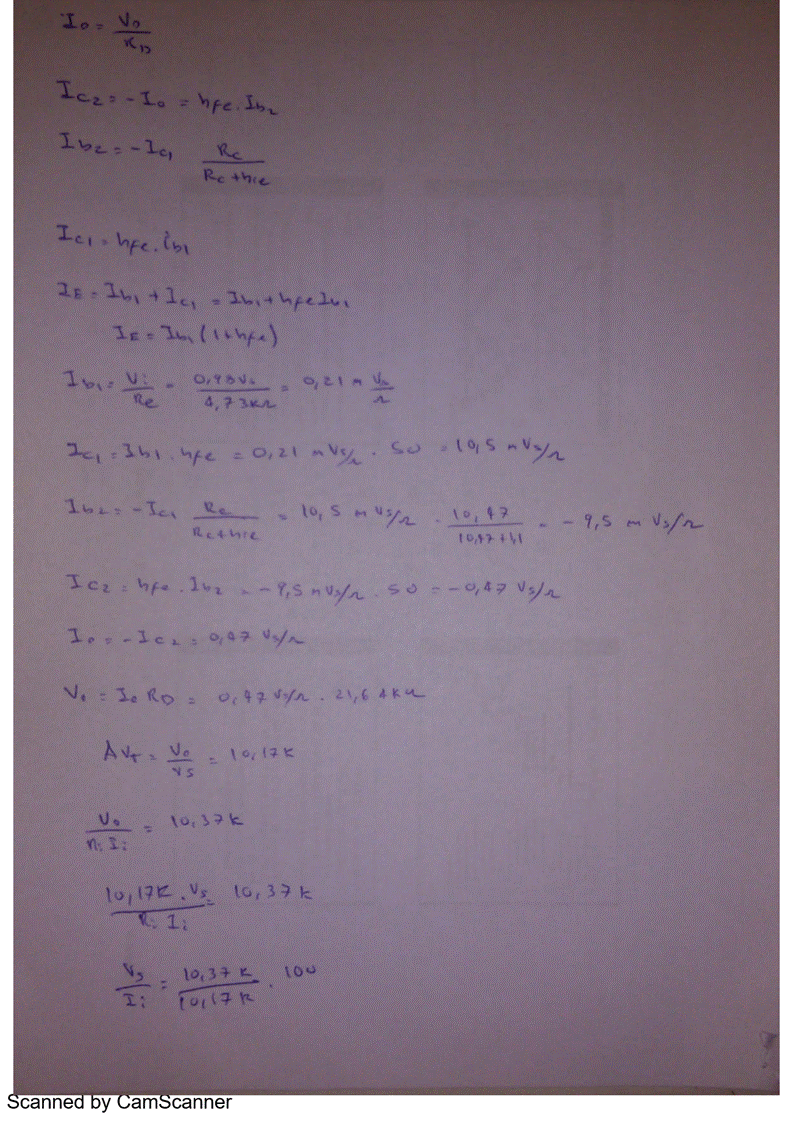 Io = Vo / RD
Ic2 = - Io = hfe . Ib2
Ib2 = - Ic1 Rc / Rc + hie
Ic1 = hfe . ib1
IE = Ib1 + Ic1 = Ib1 + hfe Ib1
IE = Ib1 (1 + hfe)
Ib1 = Vi / Re = 0,98 Vs / 4,73KΩ = 0,21 m Vs / Ω
Ic1 = Ib1 . hfe = 0,21 mVs/Ω . 50 = 10,5 mVs/Ω
Ib2 = - Ic1 Rc / Rc + hie = 10,5 m Vs/Ω . 10,47 / 10,47 + 1,1 = - 9,5 m Vs/Ω
Ic2 = hfe . Ib2 = - 9,5 mVs/Ω . 50 = - 0,47 Vs/Ω
Io = - Ic2 = 0,47 Vs/Ω
Vo = Io RD = 0,47 Vs/Ω . 21,64KΩ
AVT = Vo / Vs = 10,17K
Vo / Ri Ii = 10,37K
10,17K . Vs / Ri Ii = 10,37K
Vs / Ii = 10,37K / 10,17K . 100
Scanned by CamScanner